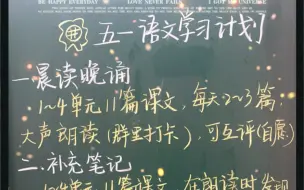 BE HAPPY EVERYDAY
LOVE NEVER FAILS
五一语文学习计划
一晨读晚诵
1~4单元11篇课文,每天2~3篇,
大声朗读(群里打卡),可互评(自愿)
二、补充笔记
1~4单元11篇课文,在朗读时发现